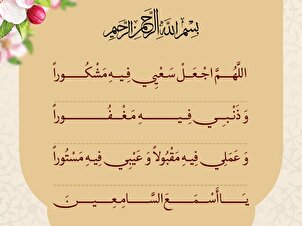 بِسْمِ اللهِ الرَّحْمنِ الرَّحِيمِ
اللَّهُمَّ اجْعَلْ سَعْيِي فِيهِ مَشْكُوراً
وَ ذَنْبِي فِيهِ مَغْفُوراً
وَ عَمَلِي فِيهِ مَقْبُولاً وَ عَيْبِي فِيهِ مَسْتُوراً
يَا أَسْمَعَ السَّامِعِينَ